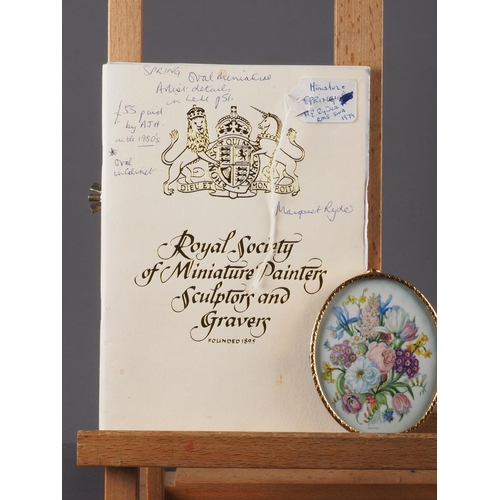 SPRING Oval Miniature
Artist details
£55 paid
by AJH
in the 1980's
* Oval
in Cabinet
Miniature
SPRING
1979
DIEU ET MON DROIT
Margaret Ryder
Royal Society
of Miniature Painters
Sculptors and
Gravers
FOUNDED 1895